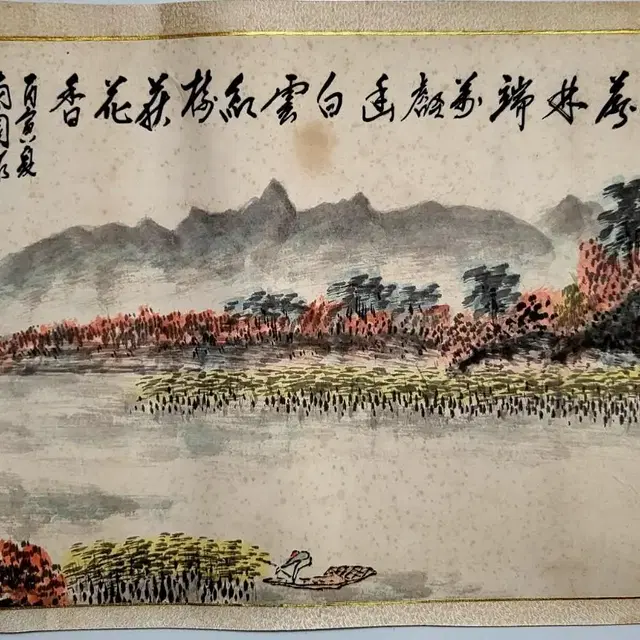 林端萬壑幽白雲紅樹荻花香
丙寅夏